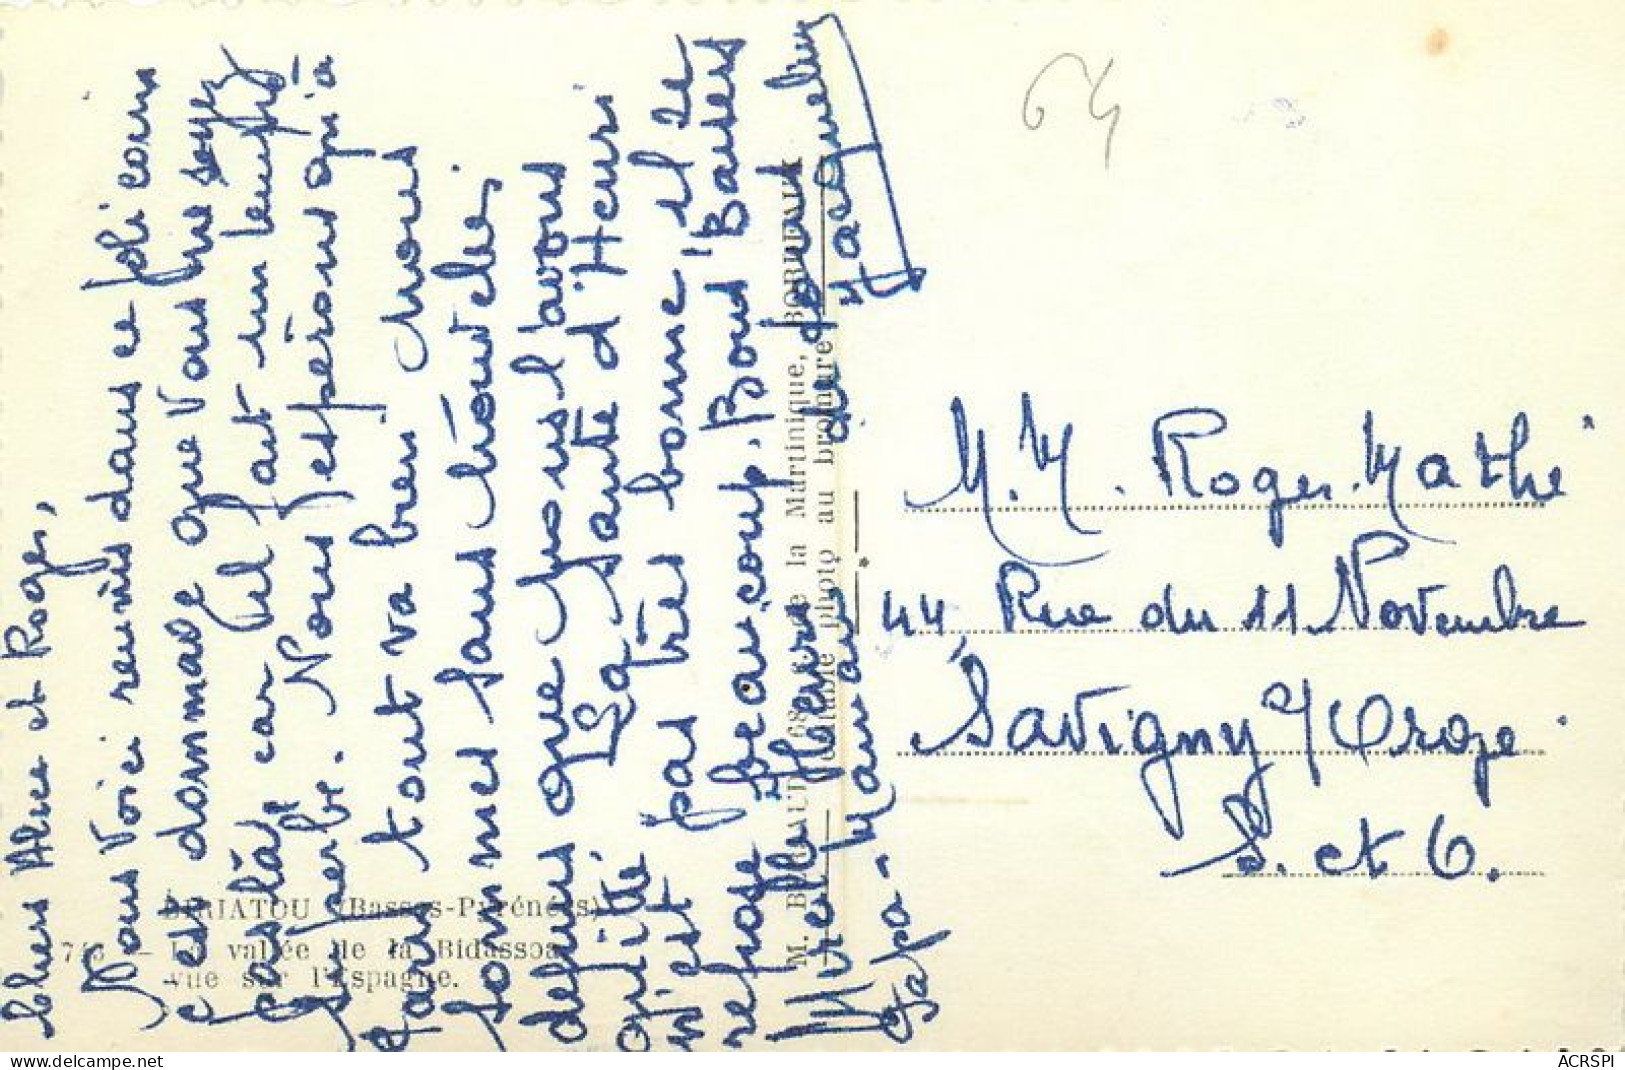 Chers Alice et Roger,
Nous voici réunis dans ce joli coin
c'est dommage que vous ne soyez
pas là, car il fait un temps
superbe. Nous espérons qu'à
Paris tout va bien nous
sommes sans nouvelles
depuis que nous l'avons
quitté. La santé d'Henri
n'est pas très bonne il se
repose beaucoup. Bons Baisers
Mireille Pierre
Papa - Maman de Jacqueline
64
M. M. Roger Mathé
44, Rue du 11 Novembre
Savigny s/Orge
S. et O.
BIRIATOU (Basses-Pyrénées)
La vallée de la Bidassoa
vue sur l'Espagne.
de la Martinique, BORDEAUX
photo au bromure
ACRSPI